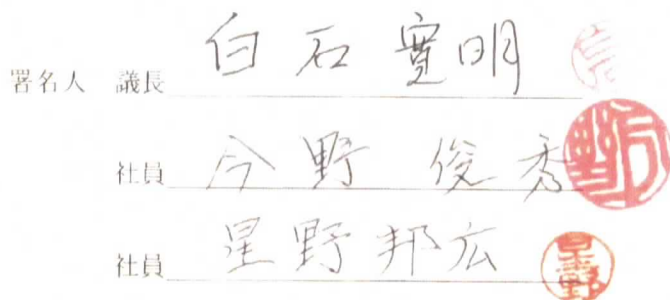 署名人 議長 白石寛明
社員 今野 俊秀
社員 星野邦広
星野